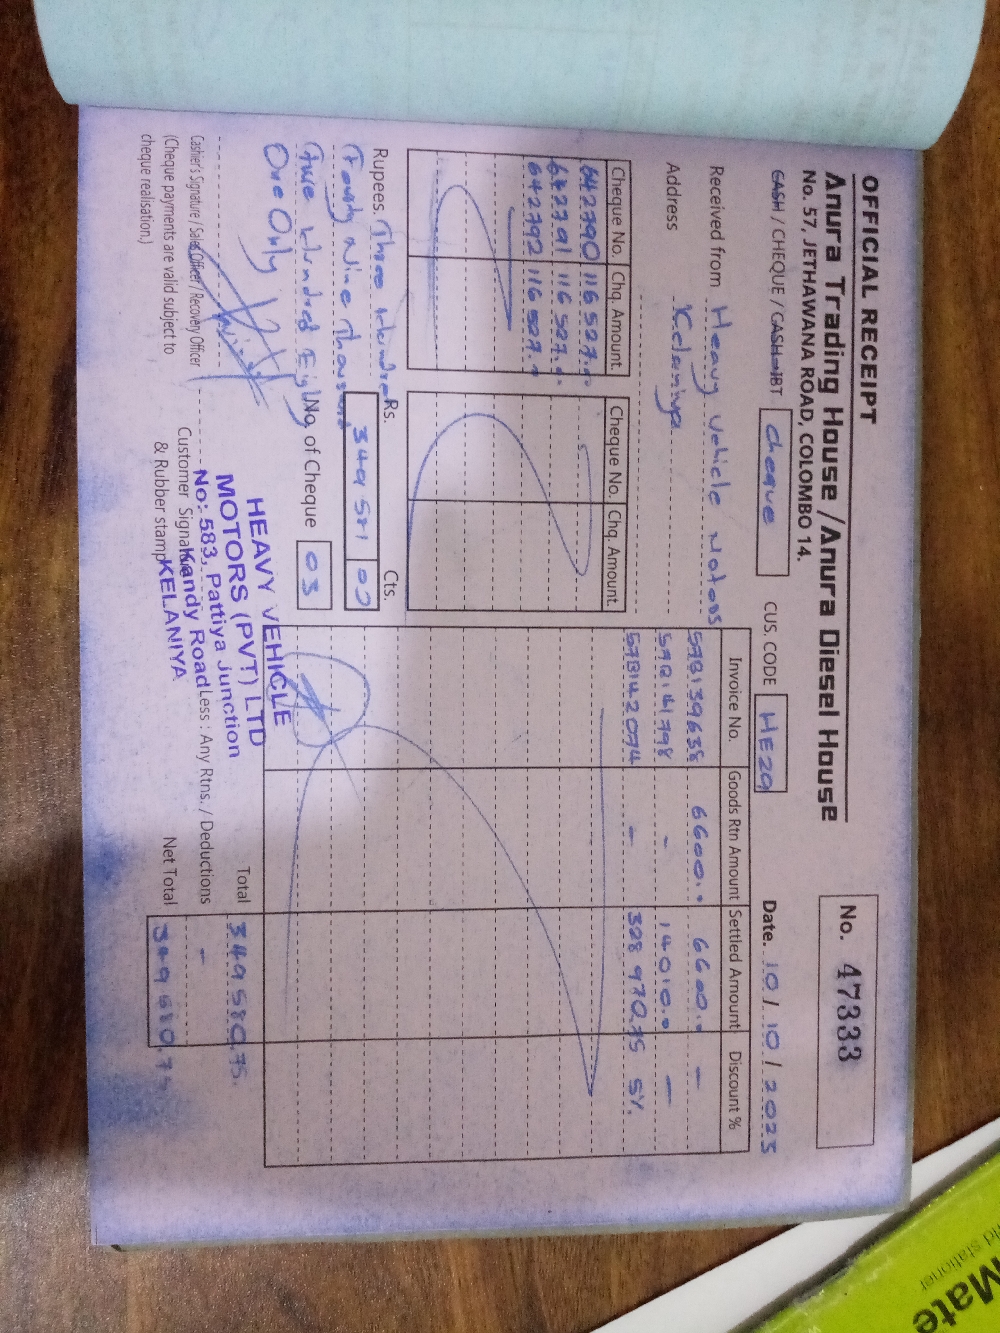 OFFICIAL RECEIPT
Anura Trading House / Anura Diesel House
No. 57, JETHAWANA ROAD, COLOMBO 14.
No. 47333
CASH / CHEQUE / CASH IBT cheque CUS. CODE HE29 Date. 10 / 10 / 2025
Received from Heavy Vehicle Motors
Address Kelaniya
Cheque No. Chq. Amount. Cheque No. Chq. Amount
642790 116 527
642791 116 527
642792 116 527
Invoice No. Goods Rtn Amount Settled Amount Discount %
598139638 6600 6600 -
14010 -
598142094 - 328 970.75 5%
Rupees. Three Hundred
Fourty Nine Thousand
Five Hundred Eighty
One Only
Rs. 349 581 00 Cts.
No. of Cheque 03
Cashier's Signature / Sales Officer / Recovery Officer
(Cheque payments are valid subject to
cheque realisation.)
Customer Signature
& Rubber stamp
HEAVY VEHICLE
MOTORS (PVT) LTD
No: 583, Pattiya Junction
Kandy Road
KELANIYA
Total 349 580.75
Less : Any Rtns. / Deductions -
Net Total 349 580.75
Mate
stationer